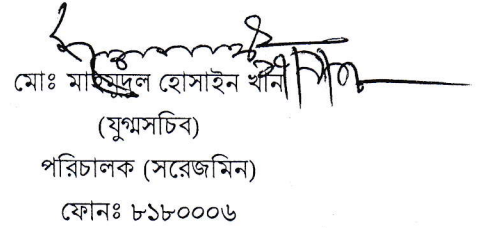 মোঃ মাহমুদুল হোসাইন খান
(যুগ্মসচিব)
পরিচালক (সরেজমিন)
ফোনঃ ৮১৮০০০৬